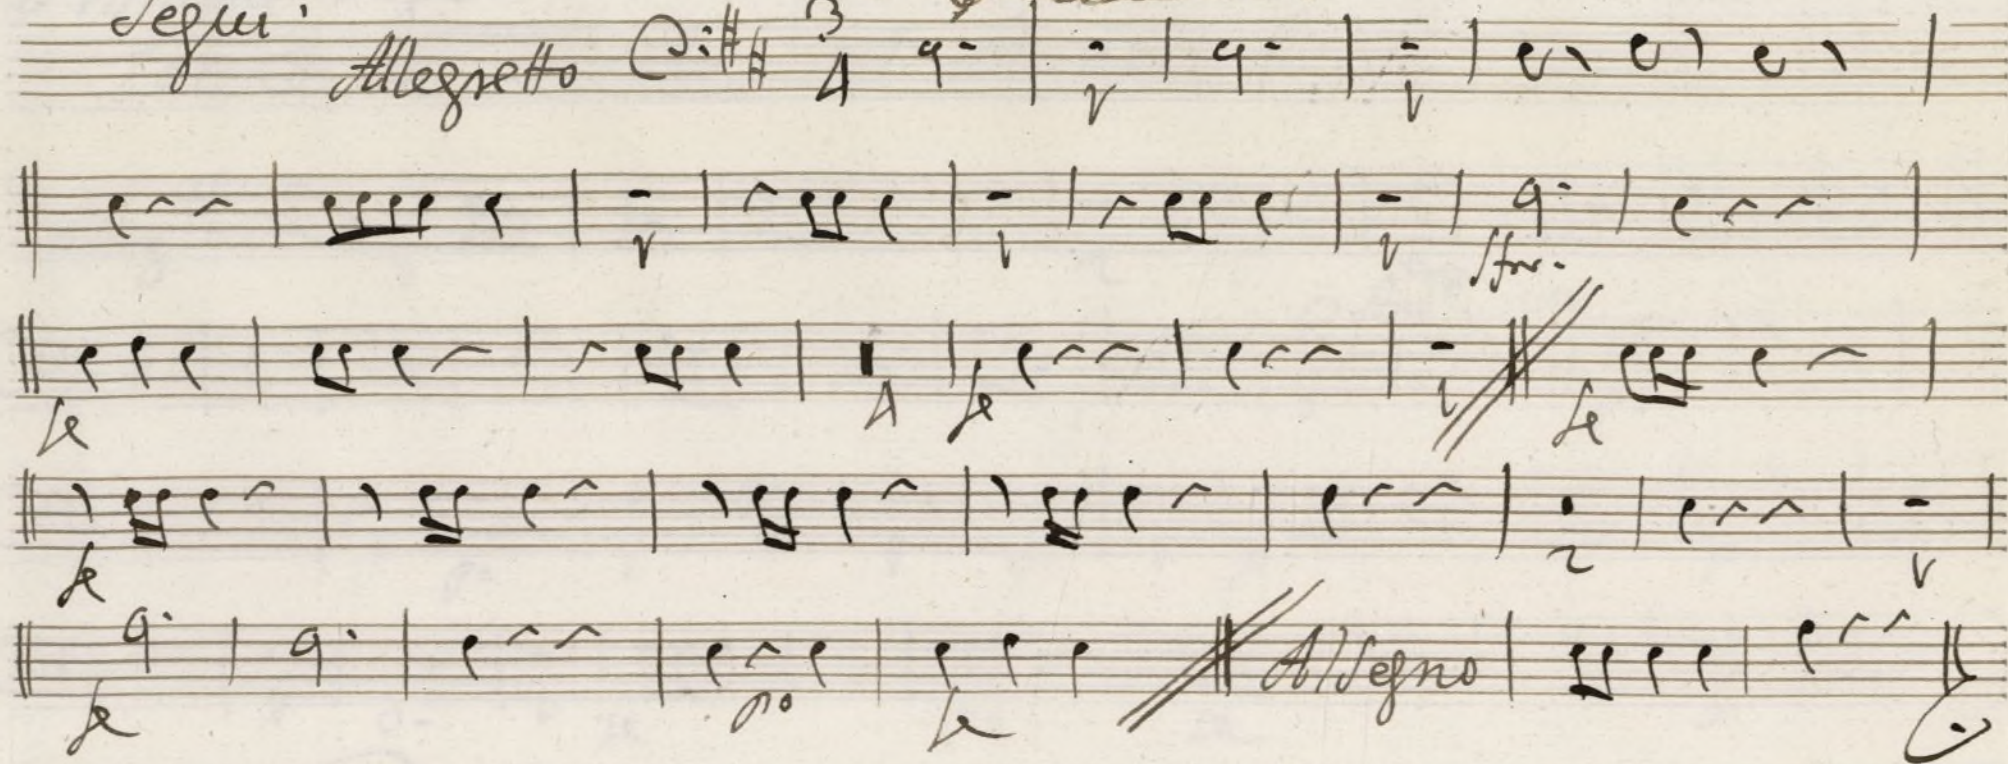 Segui.
Allegretto 3/4
1 1
1 1 1 sfor.
fe 4 fe 1 fe
fe 2 1
fe po fe Al Segno